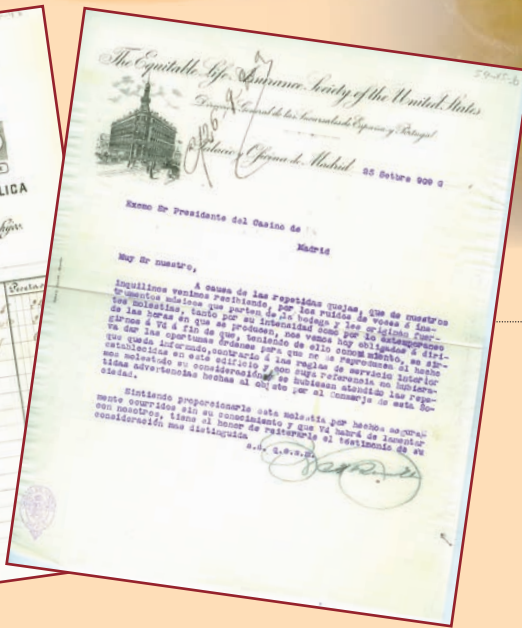 LICA
Pesetas
The Equitable Life Assurance Society of the United States
Dirección General de las Sucursales de España y Portugal
Palacio y Oficina de Madrid
25 Setbre 909 G
Exmo Sr Presidente del Casino de
Madrid
Muy Sr nuestro,
A causa de las repetidas quejas, que de nuestros
inquilinos venimos recibiendo, por los ruidos de voces é ins-
trumentos músicos que parten de la bodega y les originan fuer-
tes molestias, tanto por su intensidad como por lo extemporaneo
de las horas en que se producen, nos vemos hoy obligados á diri-
girnos á Vd á fin de que, teniendo de ello conocimiento, se sir-
va dar las oportunas órdenes para que no se reproduzca el hecho
que queda informado, contrario á las reglas de servicio interior
establecidas en este edificio y con cuya referencia no hubiera-
mos molestado su consideración si se hubiesen atendido las repe-
tidas advertencias hechas al objeto por el Conserje de esta So-
ciedad.
Sintiendo proporcionarle esta molestia por hechos segura-
mente ocurridos sin su conocimiento y que Vd habrá de lamentar
con nosotros, tiene el honor de reiterarle el testimonio de su
consideración mas distinguida
s.s. q.s.s.m.